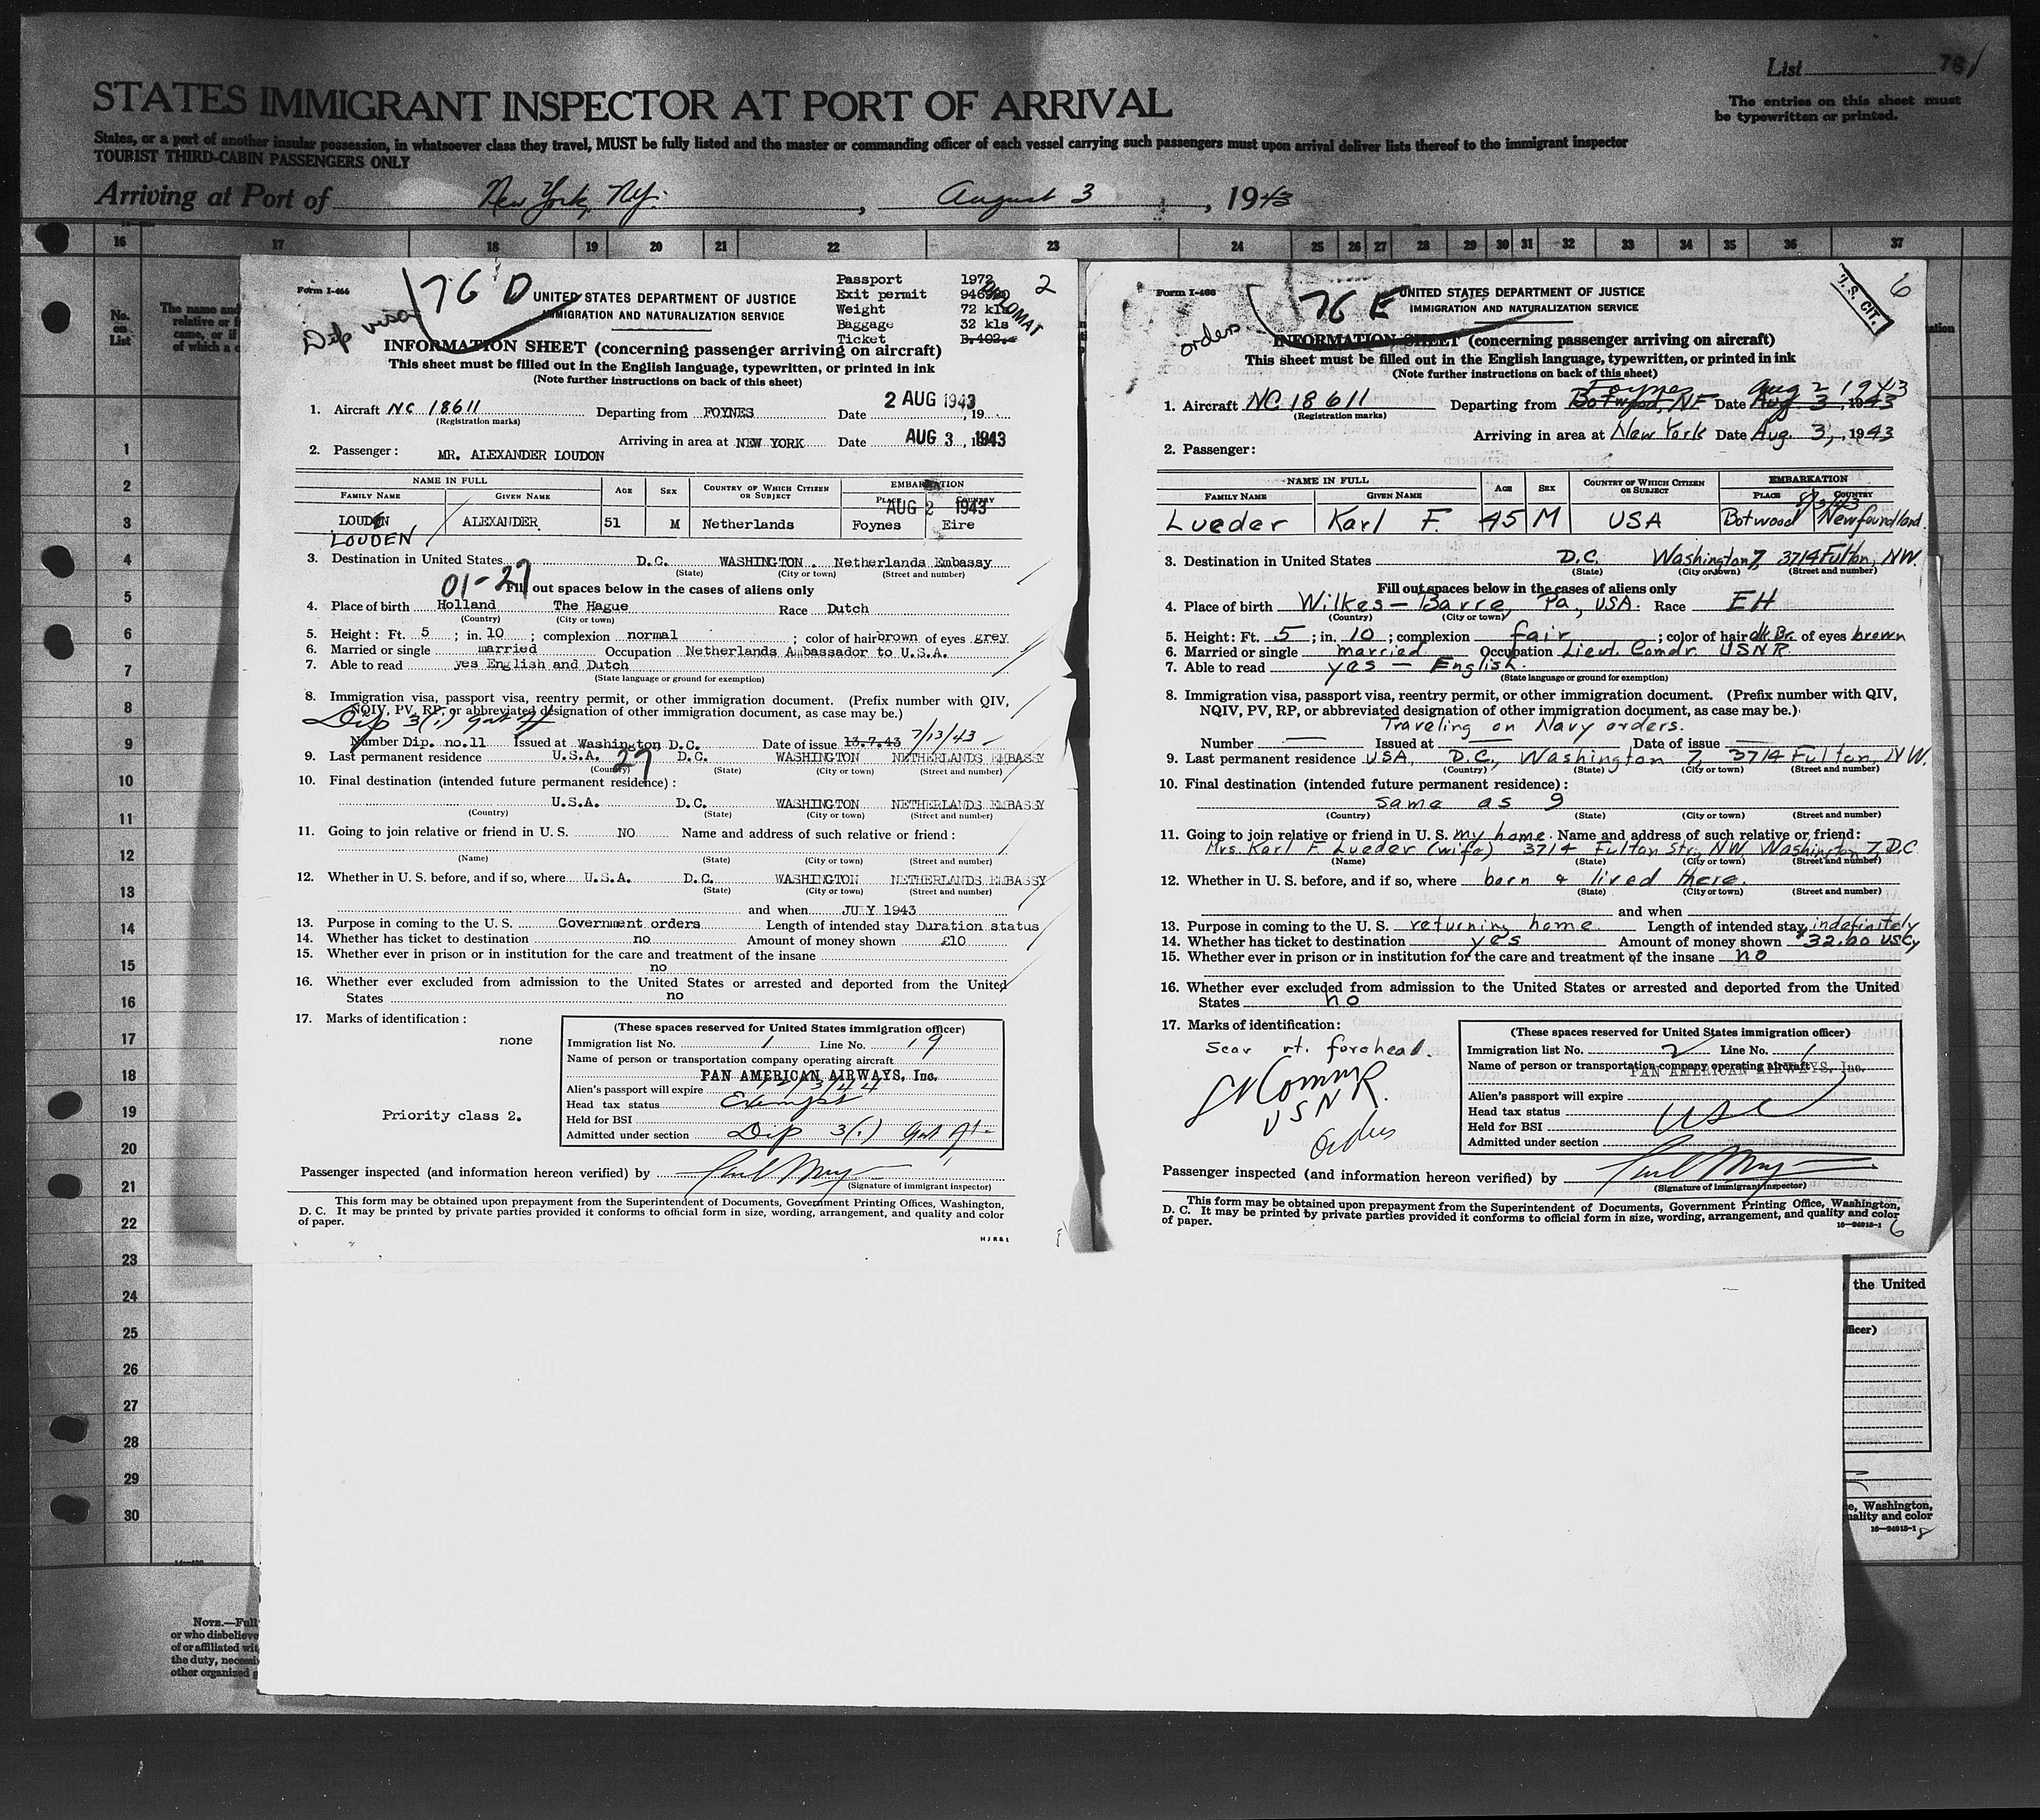 List 76
The entries on this sheet must
be typewritten or printed.
STATES IMMIGRANT INSPECTOR AT PORT OF ARRIVAL
States, or a port of another insular possession, in whatsoever class they travel, MUST be fully listed and the master or commanding officer of each vessel carrying such passengers must upon arrival deliver lists thereof to the immigrant inspector
TOURIST THIRD-CABIN PASSENGERS ONLY
Arriving at Port of New York, NY. , August 3 , 1943
16 17 18 19 20 21 22 23 24 25 26 27 28 29 30 31 32 33 34 35 36 37
No.
on
List
The name and
relative or f
came, or if
of which a c
1
2
3
4
5
6
7
8
9
10
11
12
13
14
15
16
17
18
19
20
21
22
23
24
25
26
27
28
29
30
NOTE.—Full
or who disbelieve
of or affiliated wit
the duty, necessi
other organized
Form I-466
76 D
Dip visa
2
DIPLOMAT
Passport 1972
Exit permit
Weight 72 kls
Baggage 32 kls
Ticket B.402.
UNITED STATES DEPARTMENT OF JUSTICE
IMMIGRATION AND NATURALIZATION SERVICE
INFORMATION SHEET (concerning passenger arriving on aircraft)
This sheet must be filled out in the English language, typewritten, or printed in ink
(Note further instructions on back of this sheet)
1. Aircraft NC 18611 Departing from FOYNES Date 2 AUG 1943, 19
(Registration marks)
Arriving in area at NEW YORK Date AUG 3, 1943
2. Passenger: MR. ALEXANDER LOUDON
NAME IN FULL AGE SEX COUNTRY OF WHICH CITIZEN OR SUBJECT EMBARKATION
FAMILY NAME GIVEN NAME PLACE COUNTRY
AUG 2 1943
LOUDON ALEXANDER. 51 M Netherlands Foynes Eire
LOUDEN
3. Destination in United States D.C. WASHINGTON. Netherlands Embassy
(State) (City or town) (Street and number)
01-27
Fill out spaces below in the cases of aliens only
4. Place of birth Holland The Hague Race Dutch
(Country) (City or town)
5. Height: Ft. 5 ; in. 10 ; complexion normal ; color of hair brown of eyes grey
6. Married or single married Occupation Netherlands Ambassador to U.S.A.
7. Able to read yes English and Dutch
(State language or ground for exemption)
8. Immigration visa, passport visa, reentry permit, or other immigration document. (Prefix number with QIV,
NQIV, PV, RP, or abbreviated designation of other immigration document, as case may be.)
Dip 3(1)
Number Dip. no.11 Issued at Washington D.C. Date of issue 13.7.43 7/13/43
9. Last permanent residence U.S.A. D.C. WASHINGTON NETHERLANDS EMBASSY
27
(Country) (State) (City or town) (Street and number)
10. Final destination (intended future permanent residence):
U.S.A. D.C. WASHINGTON NETHERLANDS EMBASSY
(Country) (State) (City or town) (Street and number)
11. Going to join relative or friend in U. S. NO Name and address of such relative or friend:
(Name) (State) (City or town) (Street and number)
12. Whether in U. S. before, and if so, where U.S.A. D.C. WASHINGTON NETHERLANDS EMBASSY
(State) (City or town) (Street and number)
and when JULY 1943
13. Purpose in coming to the U. S. Government orders Length of intended stay Duration status
14. Whether has ticket to destination no Amount of money shown £10
15. Whether ever in prison or in institution for the care and treatment of the insane
no
16. Whether ever excluded from admission to the United States or arrested and deported from the United
States no
17. Marks of identification:
none
Priority class 2.
(These spaces reserved for United States immigration officer)
Immigration list No. 1 Line No. 19
Name of person or transportation company operating aircraft
PAN AMERICAN AIRWAYS, Inc.
Alien's passport will expire
Head tax status Exempt
Held for BSI
Admitted under section Dip 3(1)
Passenger inspected (and information hereon verified) by
(Signature of immigrant inspector)
This form may be obtained upon prepayment from the Superintendent of Documents, Government Printing Offices, Washington,
D. C. It may be printed by private parties provided it conforms to official form in size, wording, arrangement, and quality and color
of paper.
Form I-466
orders
76 E
U.S. CIT.
6
UNITED STATES DEPARTMENT OF JUSTICE
IMMIGRATION AND NATURALIZATION SERVICE
INFORMATION SHEET (concerning passenger arriving on aircraft)
This sheet must be filled out in the English language, typewritten, or printed in ink
(Note further instructions on back of this sheet)
Foynes Aug 2 1943
1. Aircraft NC 18611 Departing from Botwood, NF Date Aug. 3, 1943
(Registration marks)
Arriving in area at New York Date Aug. 3, 1943
2. Passenger:
NAME IN FULL AGE SEX COUNTRY OF WHICH CITIZEN OR SUBJECT EMBARKATION
FAMILY NAME GIVEN NAME PLACE COUNTRY
8/3/43
Lueder Karl F. 45 M USA Botwood Newfoundland.
3. Destination in United States D.C. Washington 7, 3714 Fulton, NW.
(State) (City or town) (Street and number)
Fill out spaces below in the cases of aliens only
4. Place of birth Wilkes-Barre, Pa., USA. Race EH
(Country) (City or town)
5. Height: Ft. 5 ; in. 10 ; complexion fair ; color of hair dk. Br. of eyes brown
6. Married or single married Occupation Lieut. Comdr. USNR
7. Able to read yes — English.
(State language or ground for exemption)
8. Immigration visa, passport visa, reentry permit, or other immigration document. (Prefix number with QIV,
NQIV, PV, RP, or abbreviated designation of other immigration document, as case may be.)
Traveling on Navy orders.
Number — Issued at — Date of issue —
9. Last permanent residence USA, D.C., Washington 7, 3714 Fulton, NW.
(Country) (State) (City or town) (Street and number)
10. Final destination (intended future permanent residence):
same as 9
(Country) (State) (City or town) (Street and number)
11. Going to join relative or friend in U. S. my home. Name and address of such relative or friend:
Mrs. Karl F. Lueder (wife) 3714 Fulton Str., NW Washington 7, D.C
(Name) (State) (City or town) (Street and number)
12. Whether in U. S. before, and if so, where born & lived there.
(State) (City or town) (Street and number)
and when
13. Purpose in coming to the U. S. returning home Length of intended stay indefinitely
14. Whether has ticket to destination yes Amount of money shown $32.00 USCy
15. Whether ever in prison or in institution for the care and treatment of the insane no
16. Whether ever excluded from admission to the United States or arrested and deported from the United
States no
17. Marks of identification:
scar rt. forehead.
USNR.
Orders
(These spaces reserved for United States immigration officer)
Immigration list No. 2 Line No. 1
Name of person or transportation company operating aircraft
PAN AMERICAN AIRWAYS, Inc.
Alien's passport will expire
Head tax status USC
Held for BSI
Admitted under section
Passenger inspected (and information hereon verified) by
(Signature of immigrant inspector)
This form may be obtained upon prepayment from the Superintendent of Documents, Government Printing Office, Washington,
D. C. It may be printed by private parties provided it conforms to official form in size, wording, arrangement, and quality and color
of paper.
16—24915-1
6
the United
officer)
e, Washington,
uality and color
16—24915-1